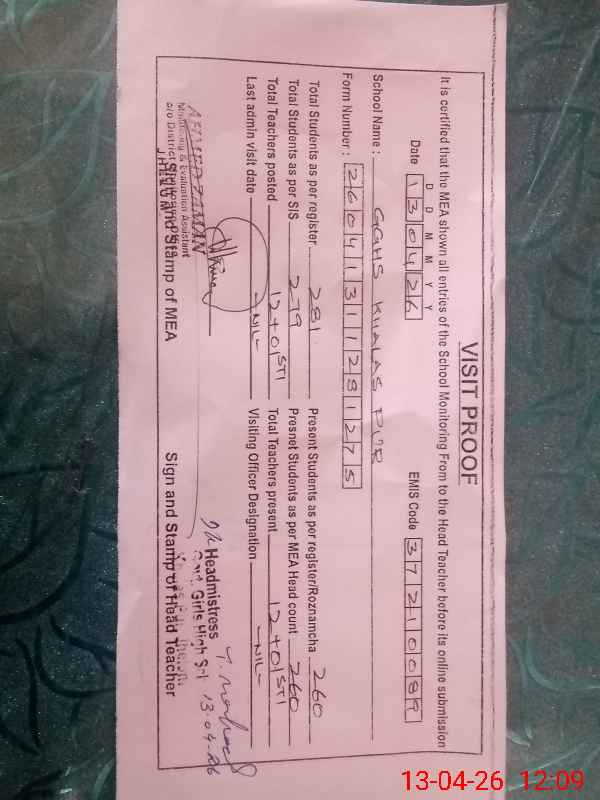 VISIT PROOF
It is certified that the MEA shown all entries of the School Monitoring From to the Head Teacher before its online submission
D D M M Y Y
Date 130426 EMIS Code 37210089
School Name : GGHS KHALAS PUR
Form Number : 26041311281275
Total Students as per register 281 Present Students as per register/Roznamcha 260
Total Students as per SIS 279 Presnet Students as per MEA Head count 260
Total Teachers posted 12+01 STI Total Teachers present 12+01 STI
Last admin visit date -NIL- Visiting Officer Designation -NIL-
AHMED ZAMAN
Monitoring & Evaluation Assistant
c/o District Monitoring Officer
JHELUM
Sign and Stamp of MEA
Headmistress
Govt. Girls High Scl
13-04-26
Sign and Stamp of Head Teacher
13-04-26 12:09